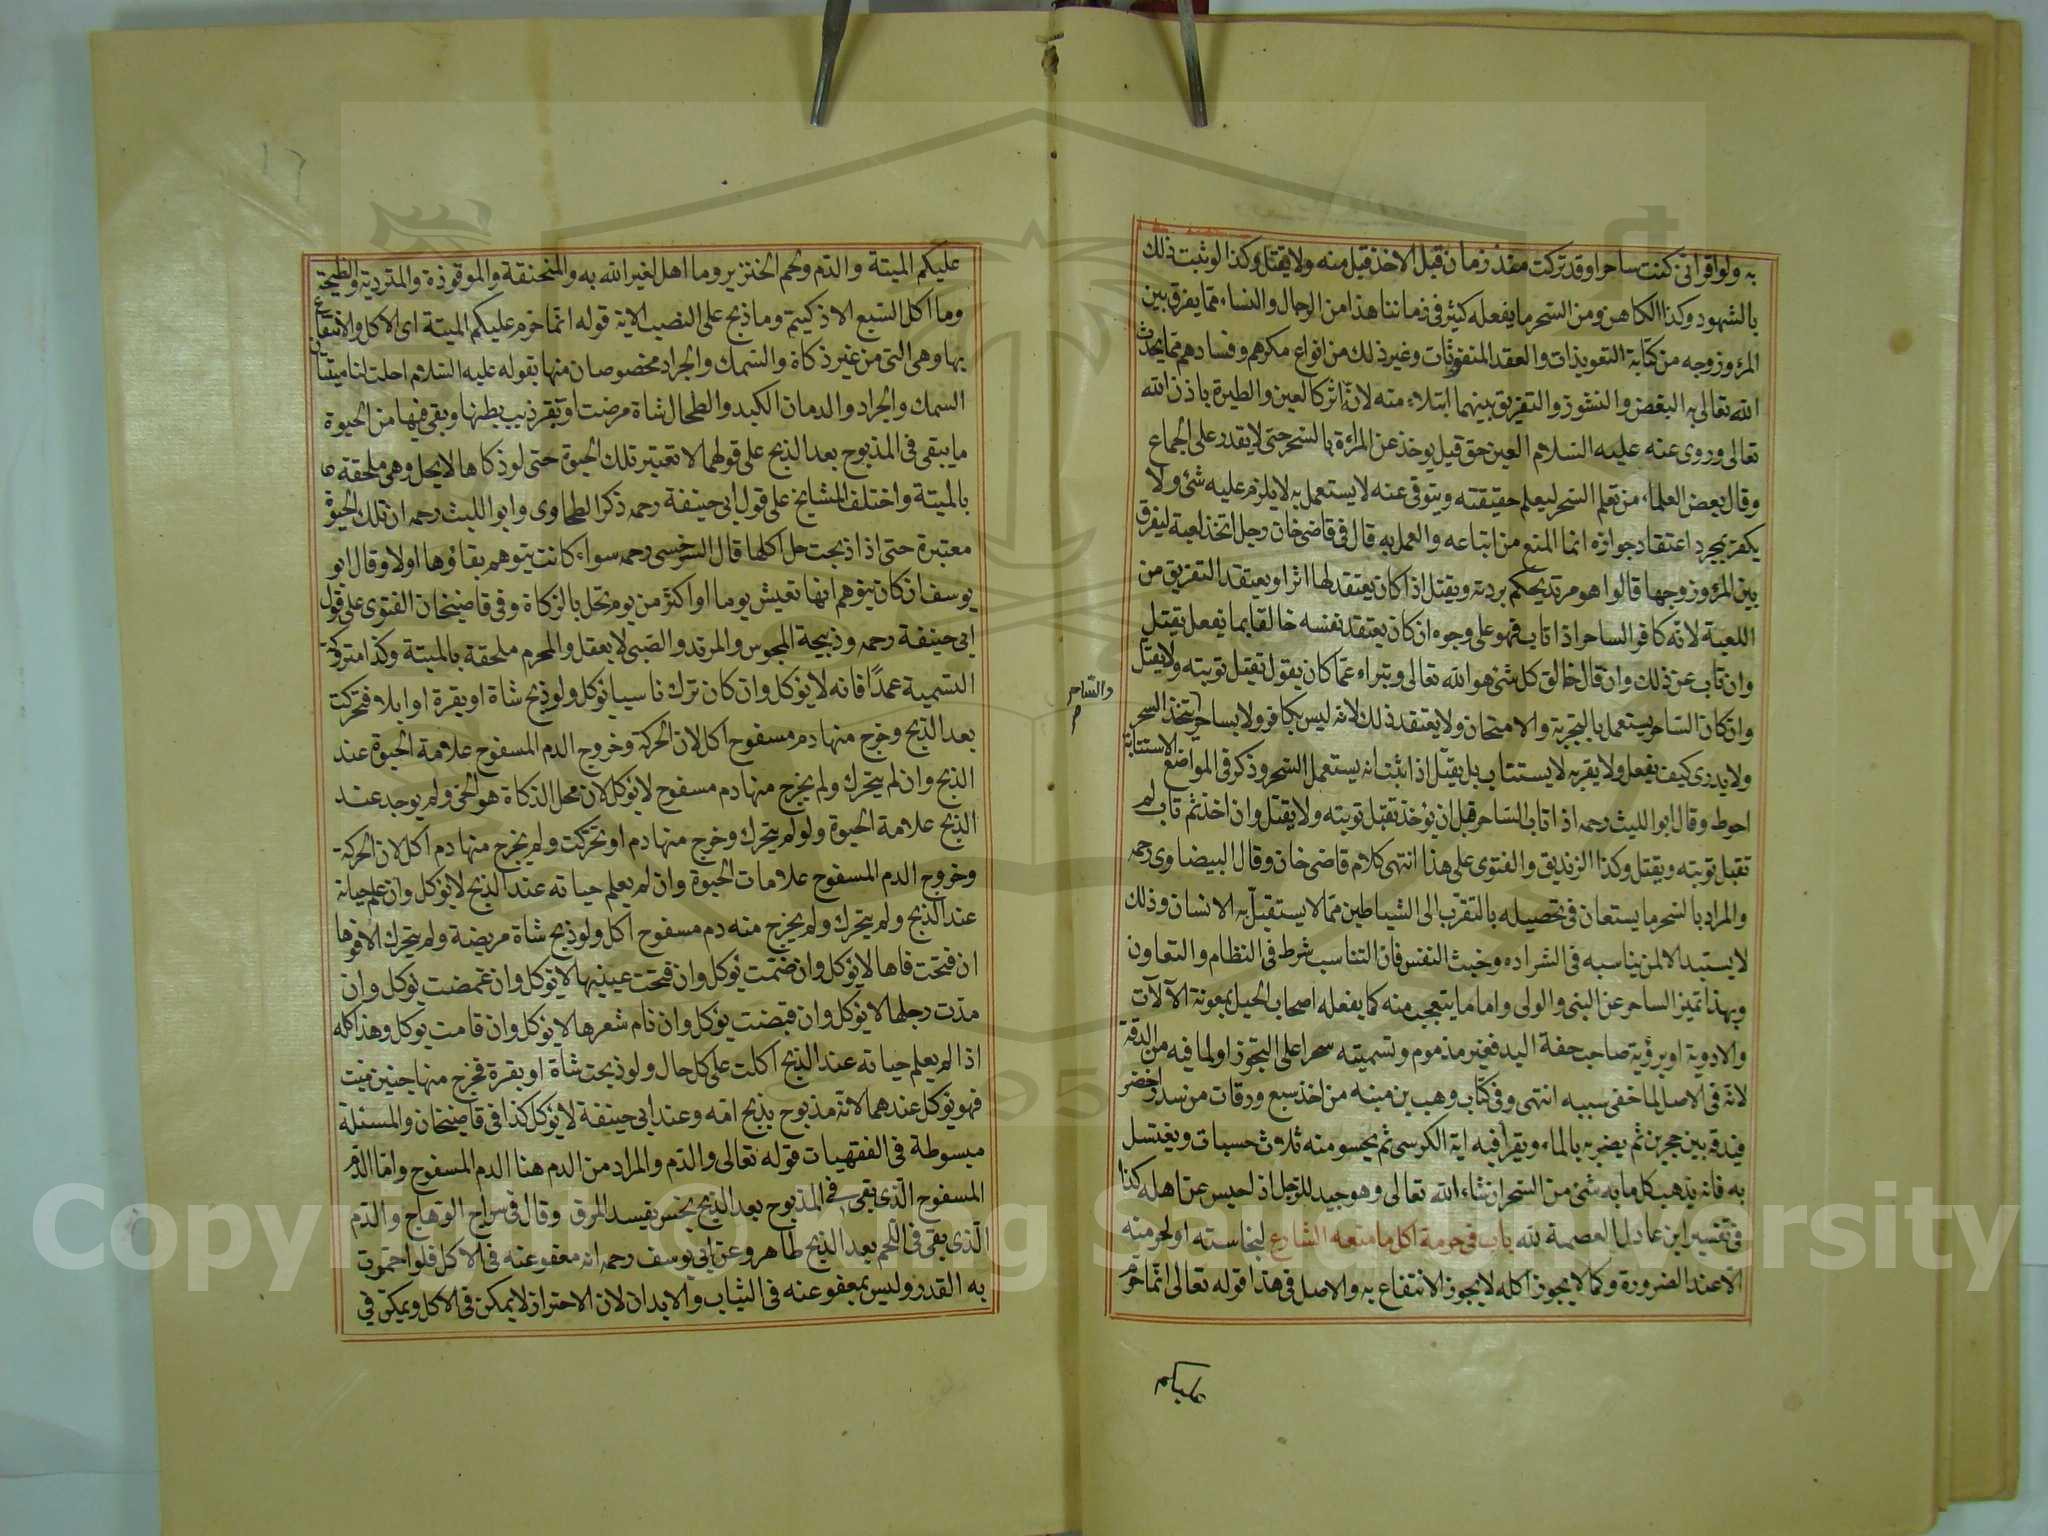 به ولو اقر انى كنت ساحرا وقد تركت منذ زمان قبل الاخذ قبل منه ولا يقتل وكذا لو ثبت ذلك
بالشهود وكذا الكاهن ومن السحر ما يفعله كثير فى زماننا هذا من الرجال والنساء مما يفرق بين
المرء وزوجه من كتابة التعويذات والعقد المنفوثات وغير ذلك من انواع مكرهم وفسادهم مما يحدث
الله تعالى به البغض والنشوز والتفريق بينهما ابتلاء منه لان اثر كالعين والطيرة باذن الله
تعالى وروى عنه عليه السلام العين حق قيل يوخذ عن المراة بالسحر حتى لا يقدر على الجماع
وقال بعض العلماء من تعلم السحر ليعلم حقيقته ويتوقى عنه لا يستعمل به لا يلزم عليه شئ ولا
يكفر بمجرد اعتقاد جوازه انما المنع من اتباعه والعمل به قال فى قاضى خان رجل اتخذ لعبة ليفرق
بين المرء وزوجها قالوا هو مرتد يحكم بردته ويقتل اذا كان يعتقد لها اثرا ويعتقد التفريق من
اللعبة لانه كافر الساحر اذا تاب فهو على وجوه ان كان يعتقد نفسه خالقا بما يفعل يقتل
وان تاب عن ذلك وان قال خالق كل شئ هو الله تعالى ويتبراء عما كان يقول تقبل توبته ولا يقتل
وان كان الساحر يستعمل بالتجربة والامتحان ولا يعتقد ذلك لانه ليس بكافر ولا بساحر يتخذ السحر
والساحر
ولا يدرى كيف يفعل ولا يقر به لا يستتاب بل يقتل اذا ثبت انه يستعمل السحر وذكر فى المواضع الاستتابة
احوط وقال ابو الليث رحمه اذا تاب الساحر قبل ان يؤخذ تقبل توبته ولا يقتل وان اخذ ثم تاب لم
تقبل توبته ويقتل وكذا الزنديق والفتوى على هذا انتهى كلام قاضى خان وقال البيضاوى رحمه
والمراد بالسحر ما يستعان فى تحصيله بالتقرب الى الشياطين مما لا يستقبل به الانسان وذلك
لا يستبد الا لمن يناسبه فى الشراده وخبث النفس فان التناسب شرط فى النظام والتعاون
وبهذا تميز الساحر عن النبى والولى واما ما يتعجب منه كما يفعله اصحاب الحيل بمعونة الآلات
والادوية او برؤية صاحب خفة اليد فغير مذموم وتسميته سحرا على التجوز او لما فيه من الدقة
لانه فى الاصل لما خفى سببه انتهى وفى كتاب وهب بن منبه من اخذ سبع ورقات من سدر اخضر
فيدقه بين حجرين ثم يضربه بالماء ويقرأ فيه اية الكرسى ثم يحسو منه ثلاث حسيات ويغتسل
به فانه يذهب كل ما به شئ من السحر انشاء الله تعالى وهو جيد للرجل اذ احبس عن اهله كذا
فى تفسير ابن عادل العصمة لله باب فى حرمة اكل ما منعه الشارع لنجاسته او لحرمته
الا عند الضرورة وكما لا يجوز اكله لا يجوز الانتفاع به والاصل فى هذا قوله تعالى انما حرم
عليكم
عليكم الميتة والدم ولحم الخنزير وما اهل لغير الله به والمنخنقة والموقوذة والمتردية والنطيحة
وما اكل السبع الا ذكيتم وما ذبح على النصب الاية قوله انما حرم عليكم الميتة اى الاكل والانتفاع
بها وهى التى من غير ذكاة والسمك والجراد مخصوصان منها بقوله عليه السلام احلت لنا ميتتان
السمك والجراد والدمان الكبد والطحال شاة مرضت او بقر ذيب بطنها وبقى فيها من الحيوة
ما يبقى فى المذبوح بعد الذبح على قولهما لا تعتبر تلك الحيوة حتى لو ذكاها لا يحل وهى ملحقة
بالميتة واختلف المشايخ على قول ابى حنيفة رحمه ذكر الطحاوى وابو الليث رحمه ان تلك الحيوة
معتبرة حتى اذا ذبحت حل اكلها قال السرخسى رحمه سواء كانت يتوهم بقاؤها اولا وقال ابو
يوسف ان كان يتوهم انها تعيش يوما او اكثر من يوم تحل بالزكاة وفى قاضيخان الفتوى على قول
ابى حنيفة رحمه وذبيحة المجوس والمرتد والصبى لا يعقل والمحرم ملحقة بالميتة وكذا متروكة
التسمية عمدا فانه لا يؤكل وان كان ترك ناسيا يؤكل ولو ذبح شاة او بقرة او ابلا فتحركت
بعد الذبح وخرج منها دم مسفوح اكل لان الحركة وخروج الدم المسفوح علامة الحيوة عند
الذبح وان لم يتحرك ولم يخرج منها دم مسفوح لا يؤكل لان محل الذكاة هو الحى ولم يوجد عند
الذبح علامة الحيوة ولو لم يتحرك وخرج منها دم او تحركت ولم يخرج منها دم اكل لان الحركة
وخروج الدم المسفوح علامات الحيوة وان لم يعلم حياته عند الذبح لا يؤكل وان علم حياته
عند الذبح ولم يتحرك ولم يخرج منه دم مسفوح اكل ولو ذبح شاة مريضة ولم يتحرك الا فوها
ان فتحت فاها لا يؤكل وان ضمت يؤكل وان فتحت عينيها لا يؤكل وان غمضت يؤكل وان
مدت رجلها لا يؤكل وان قبضت يؤكل وان نام شعرها لا يؤكل وان قامت يوكل وهذا كله
اذا لم يعلم حياته عند الذبح اكلت على كل حال ولو ذبحت شاة او بقرة فخرج منها جنين ميت
فهو يؤكل عندهما لانه مذبوح بذبح امه وعند ابى حنيفة لا يؤكل كذا فى قاضيخان والمسئلة
مبسوطة فى الفقهيات قوله تعالى والدم والمراد من الدم هنا الدم المسفوح واما الدم
المسفوح الذى بقى فى المذبوح بعد الذبح نجس يفسد المرق وقال فى سراج الوهاج والدم
الذى بقى فى اللحم بعد الذبح طاهر وعن ابى يوسف رحمه انه معفو عنه فى الاكل فلو احمرت
به القدر وليس بمعفو عنه فى الثياب والابدان لان الاحتراز لا يمكن فى الاكل ويمكن فى
Copyright © King Saud University
1957